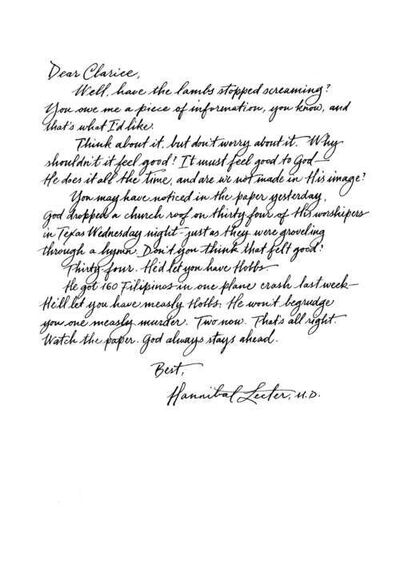 Dear Clarice,
Well, have the lambs stopped screaming?
You owe me a piece of information, you know, and
that's what I'd like.
Think about it, but don't worry about it. Why
shouldn't it feel good? It must feel good to God—
He does it all the time, and are we not made in His image?
You may have noticed in the paper yesterday,
God dropped a church roof on thirty four of His worshipers
in Texas Wednesday night – just as they were groveling
through a hymn. Don't you think that felt good?
Thirty four. He'd let you have Hobbs.
He got 160 Filipinos in one plane crash last week–
He'll let you have measly Hobbs. He won't begrudge
you one measly murder. Two now. That's all right.
Watch the paper. God always stays ahead.
Best,
Hannibal Lecter, M.D.